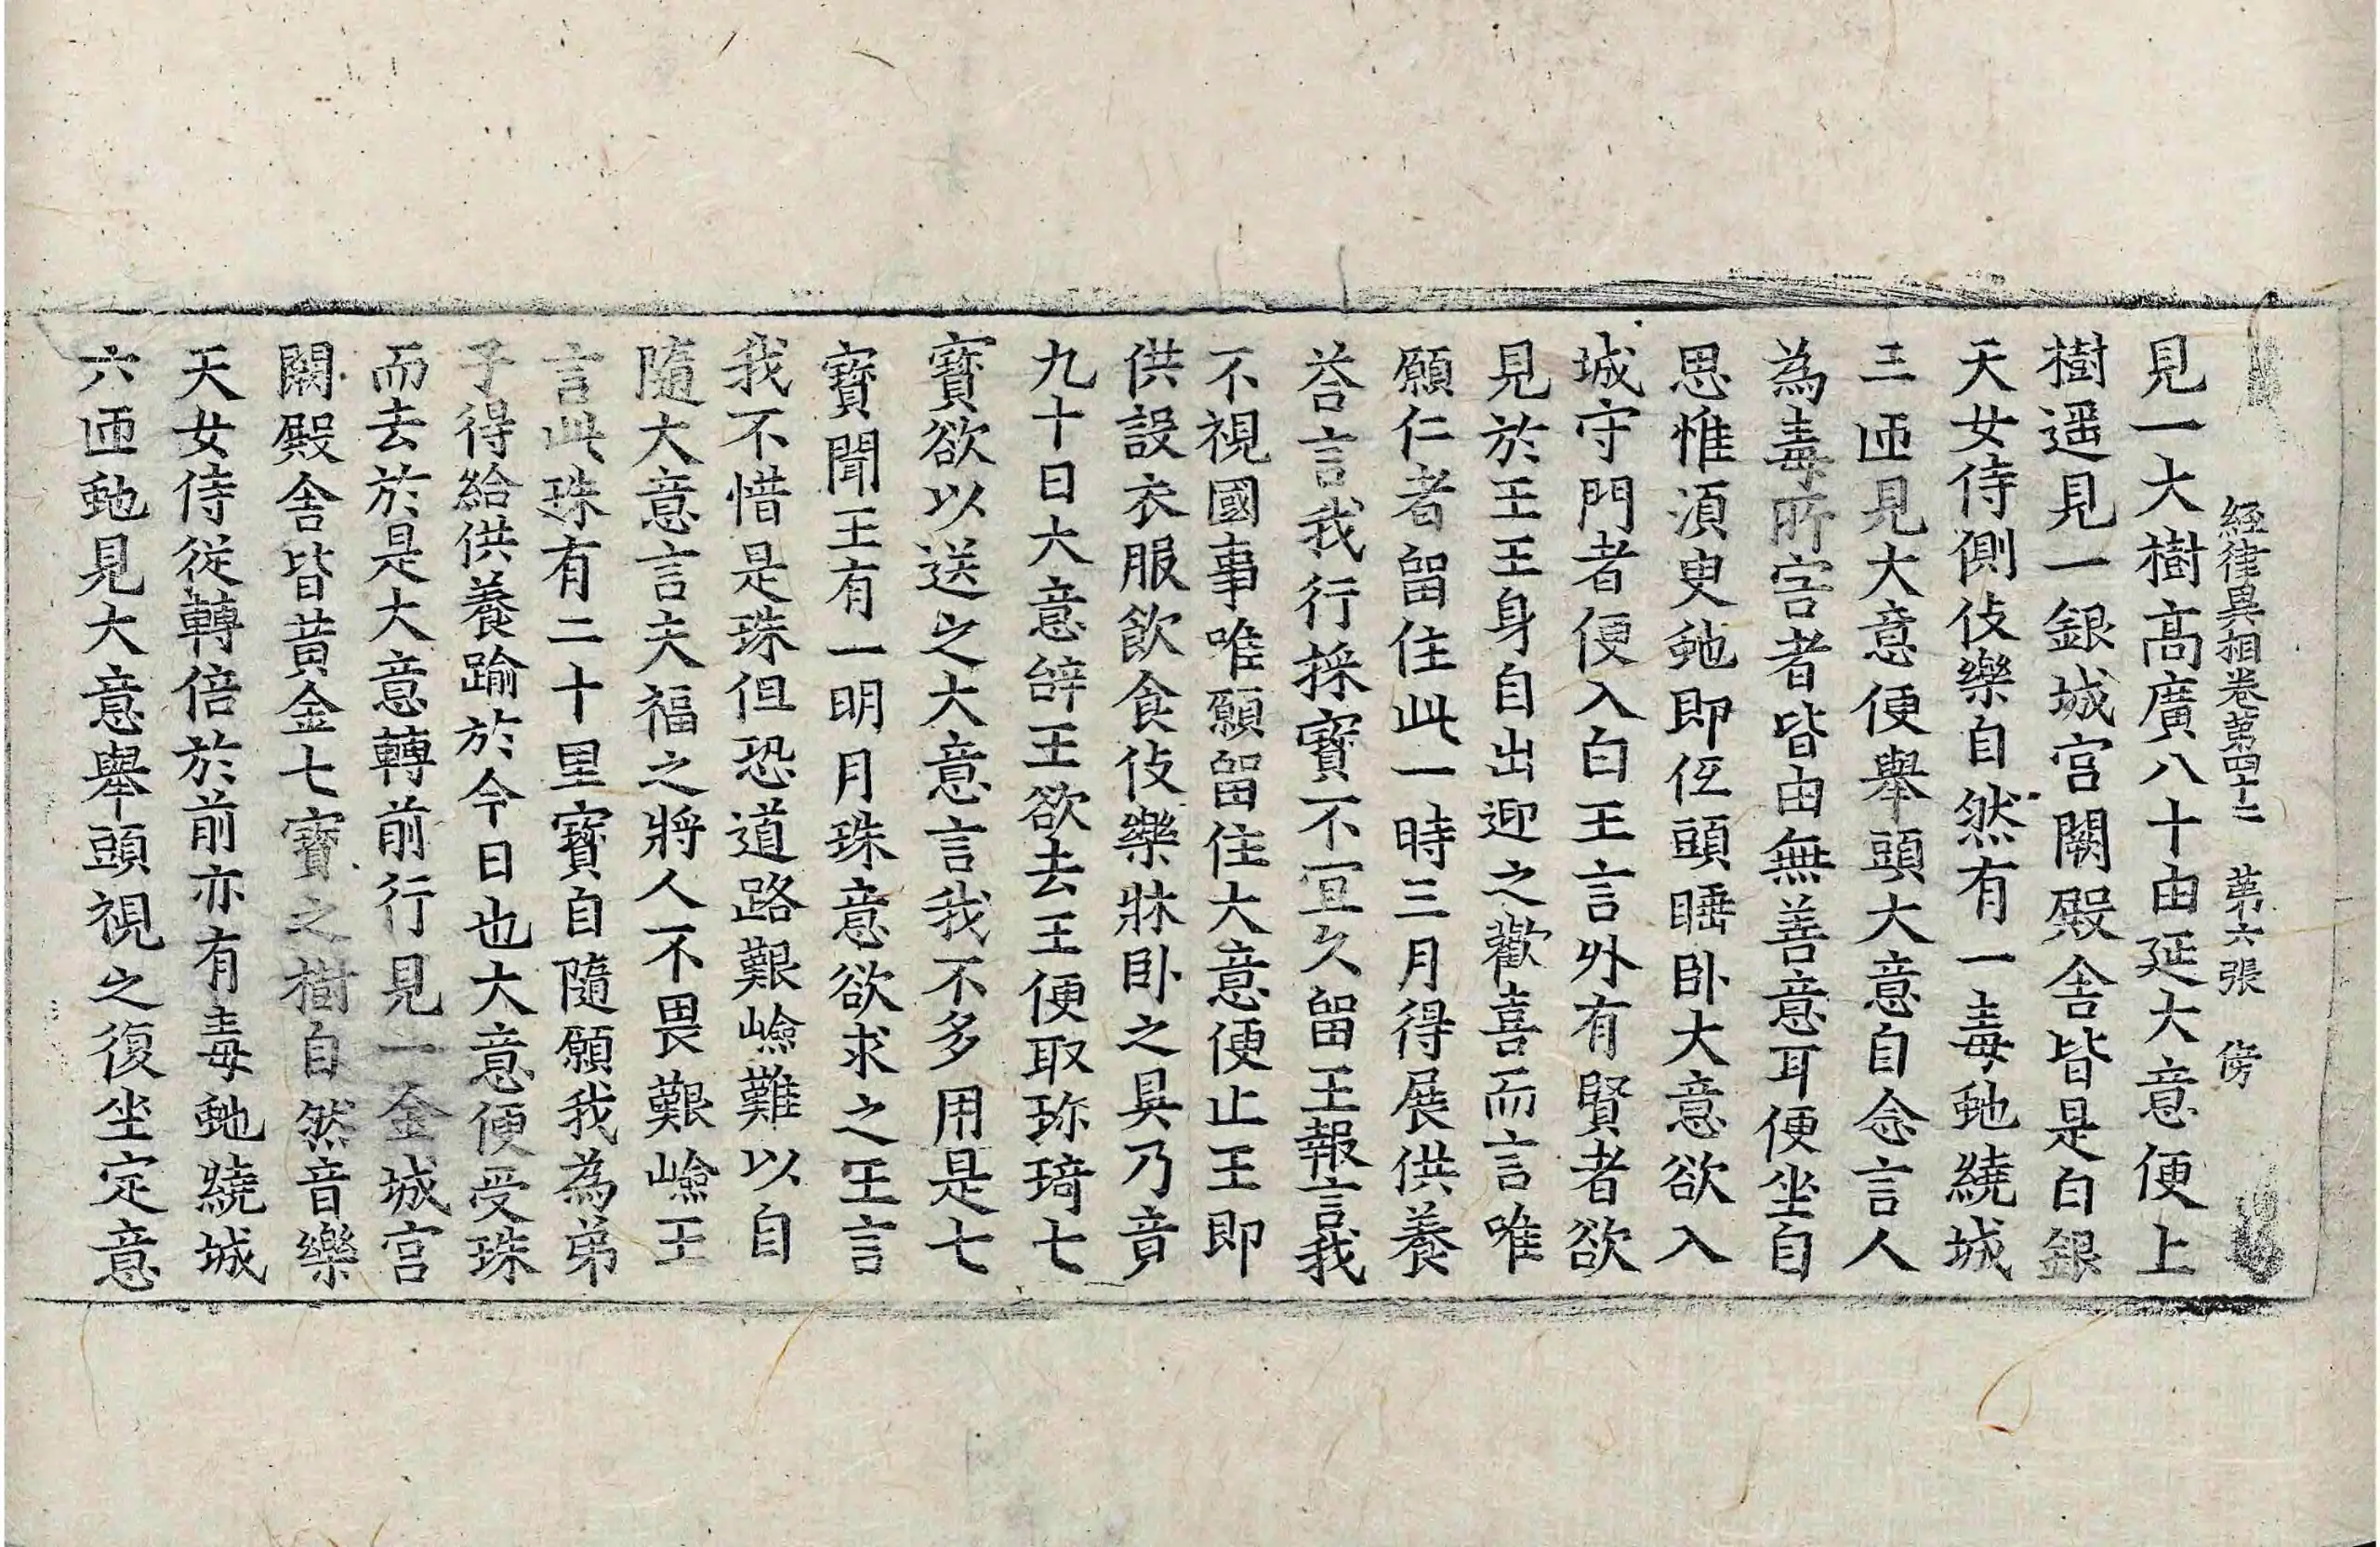 經律異相卷第四十二 第六張 傍
見一大樹高廣八十由延大意便上
樹遥見一銀城宮闕殿舎皆是白銀
天女侍側伎樂自然有一毒虵繞城
三匝見大意便舉頭大意自念言人
為毒所害者皆由無善意耳便坐自
思惟湏臾虵即伍頭睡卧大意欲入
城守門者便入白王言外有賢者欲
見於王王身自出迎之歡喜而言唯
願仁者留住此一時三月得展供養
荅言我行採寳不宜久留王報言我
不視國事唯願留住大意便止王即
供設衣服飲食伎樂牀卧之具乃竟
九十日大意辝王欲去王便取珎琦七
寳欲以送之大意言我不多用是七
寳聞王有一明月珠意欲求之王言
我不惜是珠但恐道路艱嶮難以自
隨大意言夫福之將人不畏艱嶮王
言此珠有二十里寳自隨願我為弟
子得給供養踰於今日也大意便受珠
而去於是大意轉前行見一金城宮
闕殿舎皆黄金七寳之樹自然音樂
天女侍從轉倍於前亦有毒虵繞城
六匝虵見大意舉頭視之復坐定意